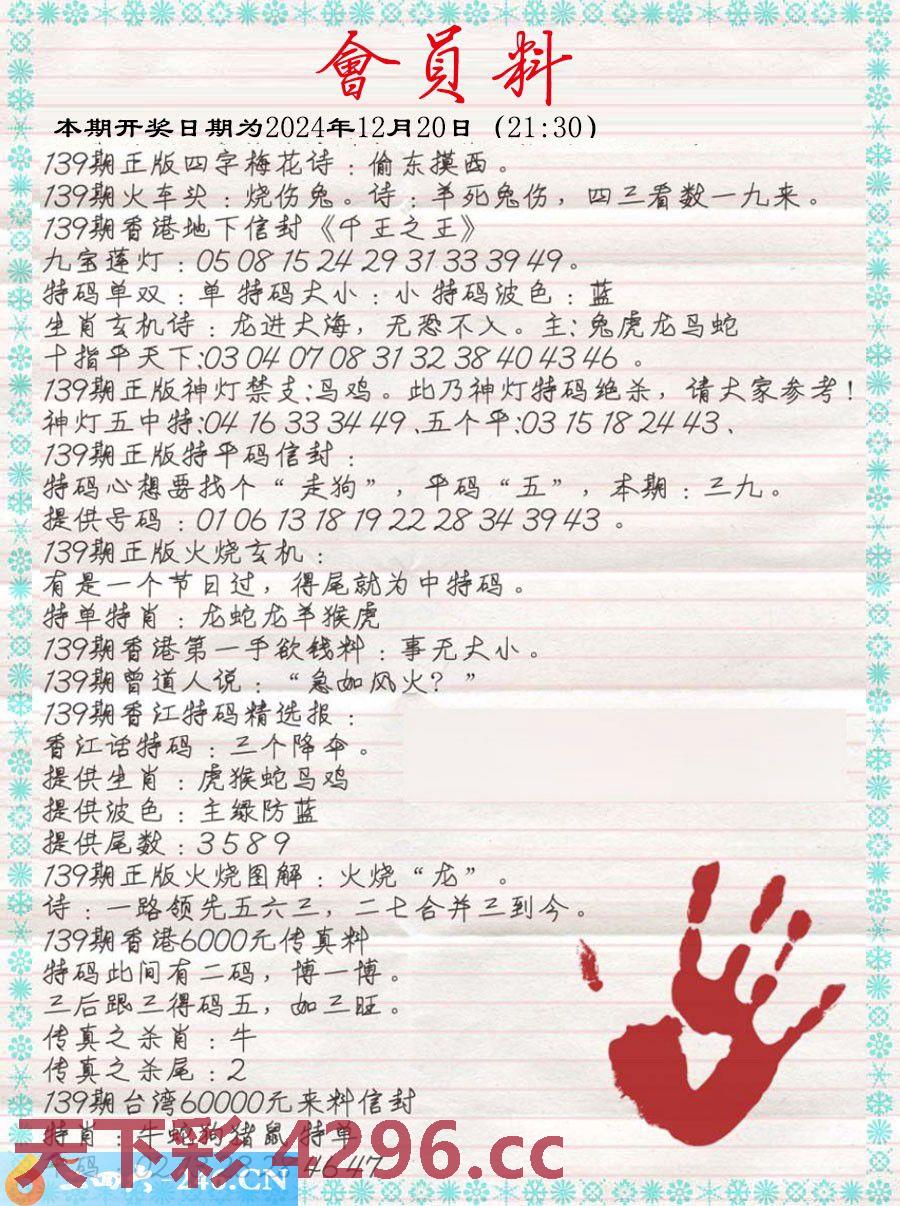 會員料
本期开奖日期为2024年12月20日（21:30）
139期正版四字梅花诗：偷东摸西。
139期火车头：烧伤兔。诗：羊死兔伤，四三看数一九来。
139期香港地下信封《千王之王》
九宝莲灯：05 08 15 24 29 31 33 39 49。
特码单双：单 特码大小：小 特码波色：蓝
生肖玄机诗：龙进大海，无恐不入。主：兔虎龙马蛇
十指平天下:03 04 07 08 31 32 38 40 43 46 。
139期正版神灯禁支:马鸡。此乃神灯特码绝杀，请大家参考！
神灯五中特:04 16 33 34 49 、五个平:03 15 18 24 43 、
139期正版特平码信封：
特码心想要找个“走狗”，平码“五”，本期：三九。
提供号码：01 06 13 18 19 22 28 34 39 43 。
139期正版火烧玄机：
有是一个节日过，得尾就为中特码。
特单特肖：龙蛇龙羊猴虎
139期香港第一手欲钱料：事无大小。
139期曾道人说：“急如风火？”
139期香江特码精选报：
香江话特码：三个降伞。
提供生肖：虎猴蛇马鸡
提供波色：主绿防蓝
提供尾数：3 5 8 9
139期正版火烧图解：火烧“龙”。
诗：一路领先五六三，二七合并三到今。
139期香港6000元传真料
特码此间有二码，博一博。
三后跟三得码五，如三旺。
传真之杀肖：牛
传真之杀尾：2
139期台湾60000元来料信封
特肖：牛蛇狗猪鼠 特单
46 47
天下彩 4296.cc
246.CN